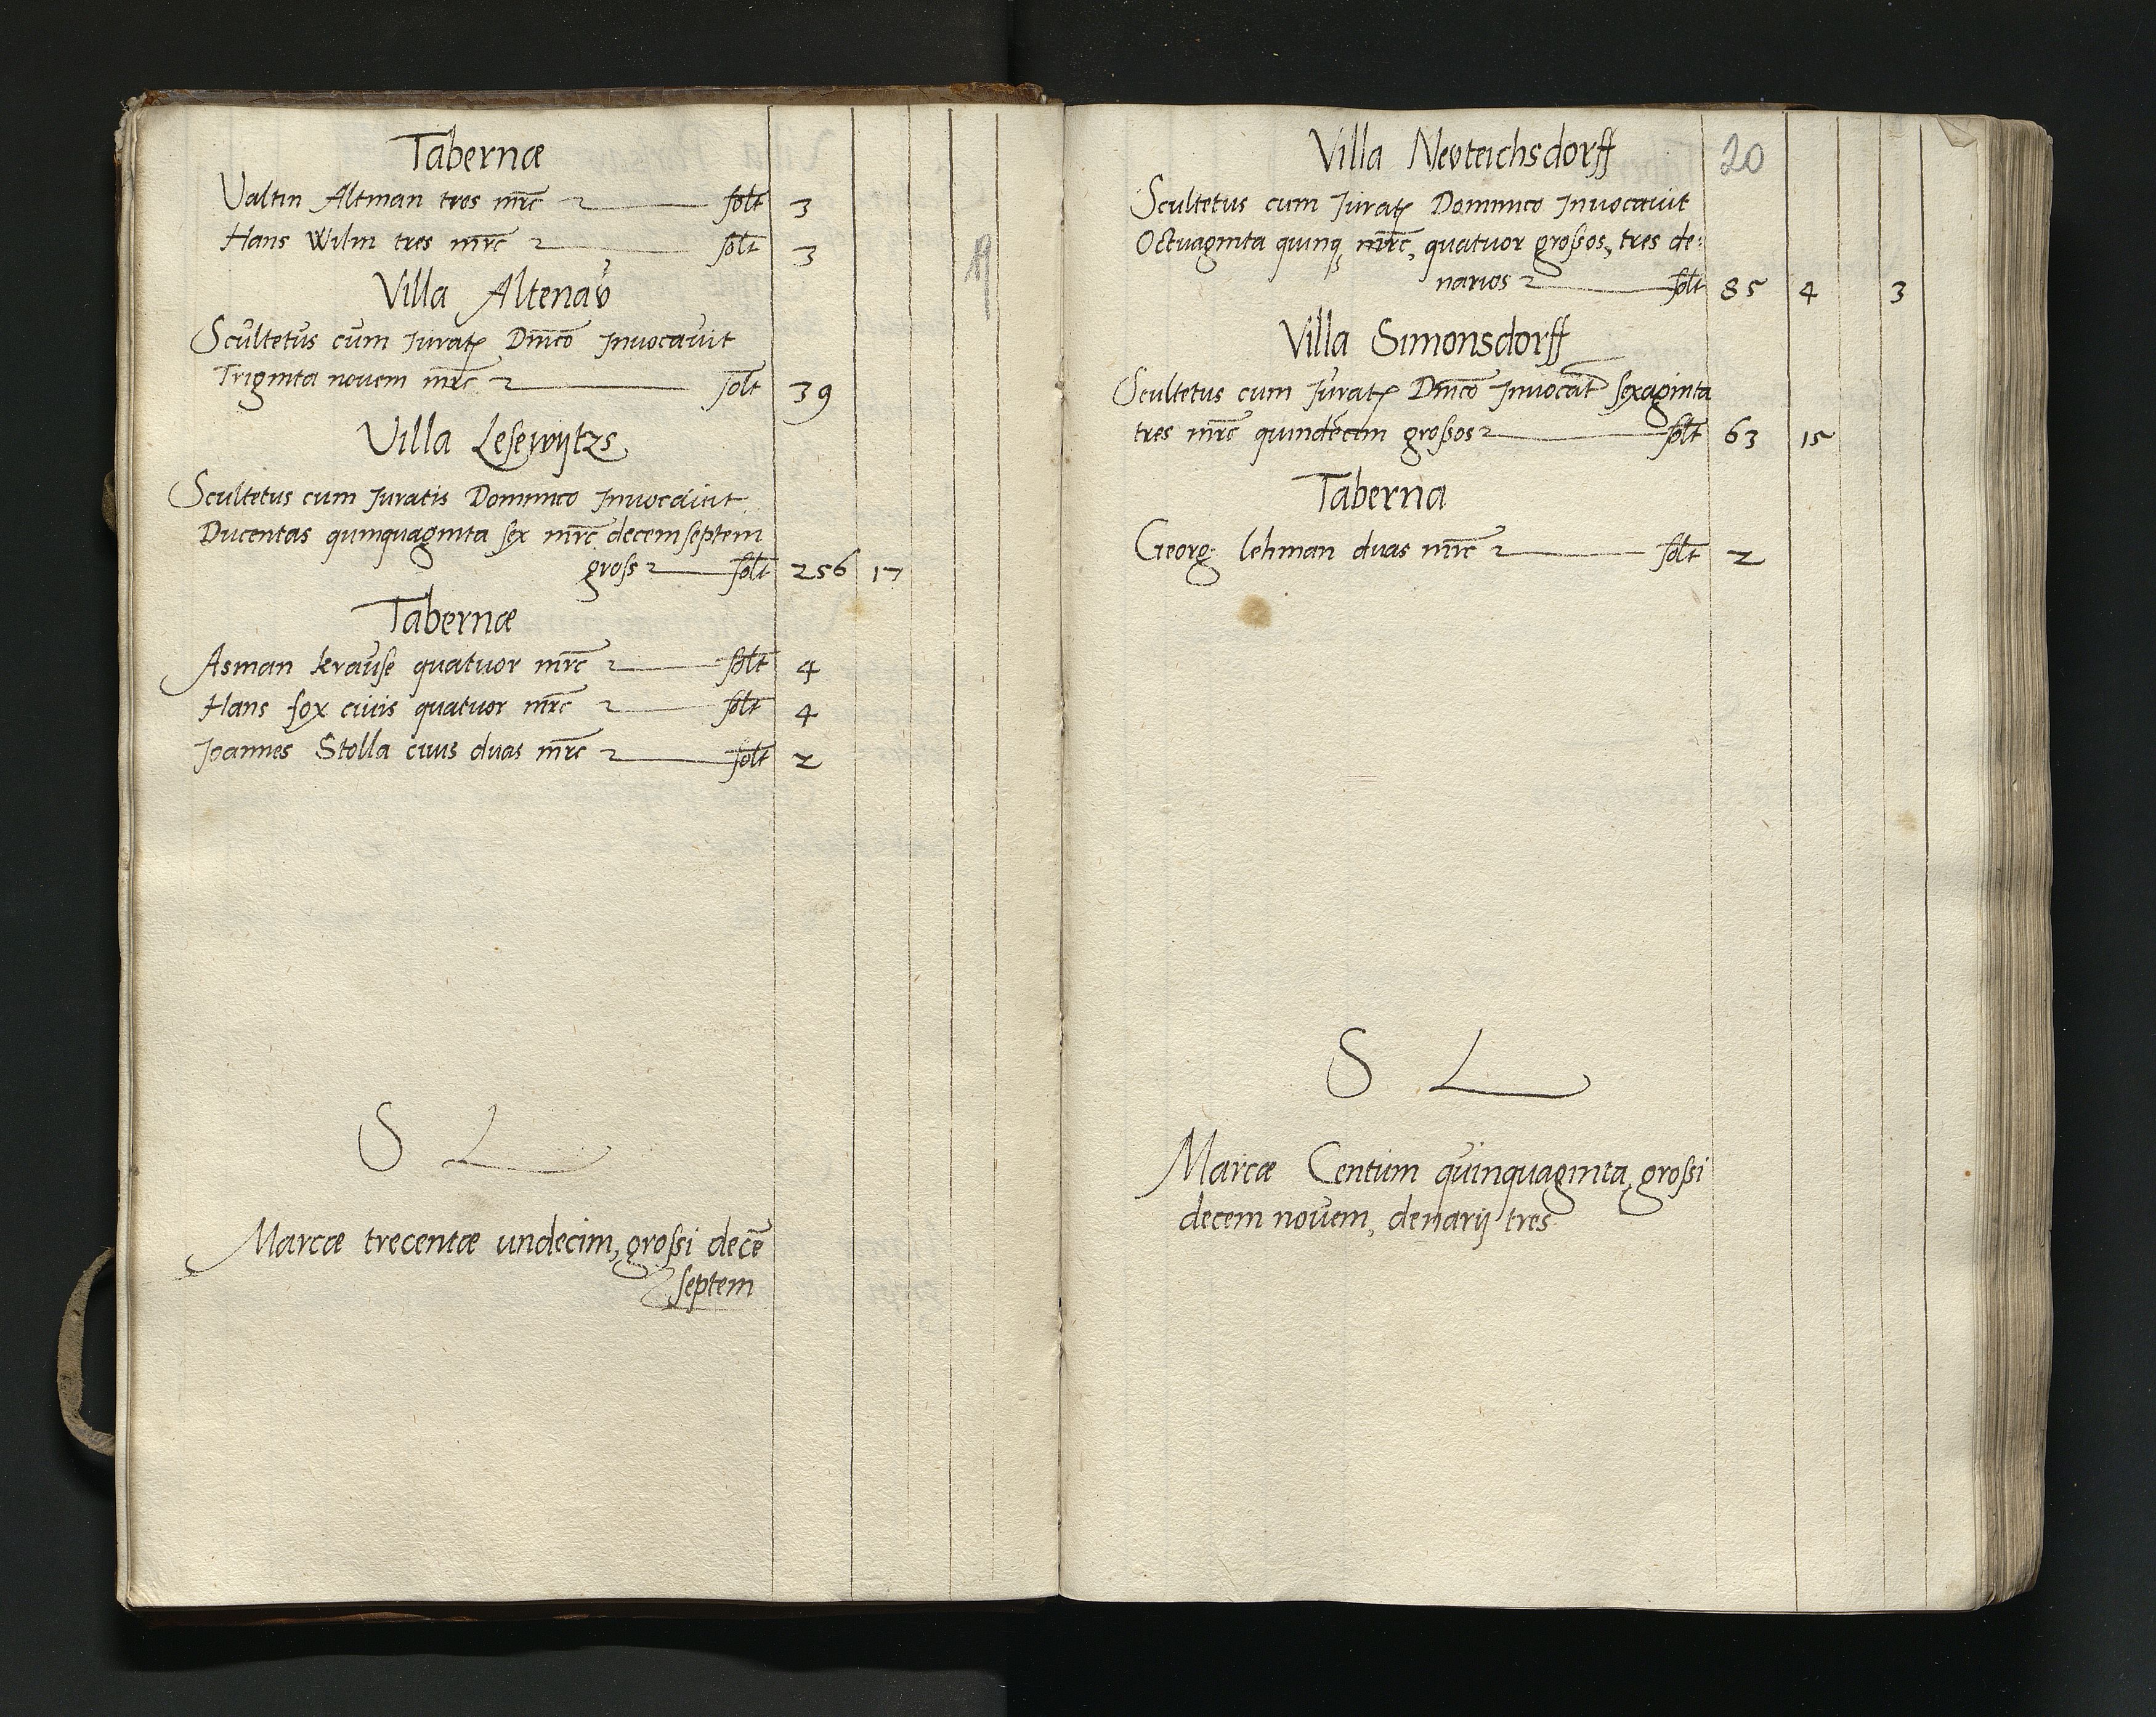 Tabernæ
Valtin Altman tres mrc solt 3
Hans Wilm tres mrc solt 3
Villa Altenaů
Scultetus cum Jurat Dnico Inuocauit
Triginta nouem mrc solt 39
Villa Lesewijtzs
Scultetus cum Juratis Dominico Inuocauit
Ducentas quinquaginta sex mrc decem septem
gross solt 256 17
Tabernæ
Asman krause quatuor mrc solt 4
Hans fox ciuis quatuor mrc solt 4
Joannes Stolla ciuis duas mrc solt 2
S L
Marcæ trecentæ undecim, grossi decē
septem
Villa Nevteichsdorff 20
Scultetus cum Jurat Dominico Inuocauit
Octuaginta quinq mrc, quatuor grossos, tres de:
narios solt 85 4 3
Villa Simonsdorff
Scultetus cum Jurat Dnico Inuocat sexaginta
tres mrc quindecim grossos solt 63 15
Taberna
Georg: lehman duas mrc solt 2
S L
Marcæ Centum quinquaginta, grossi
decem nouem, denarij tres